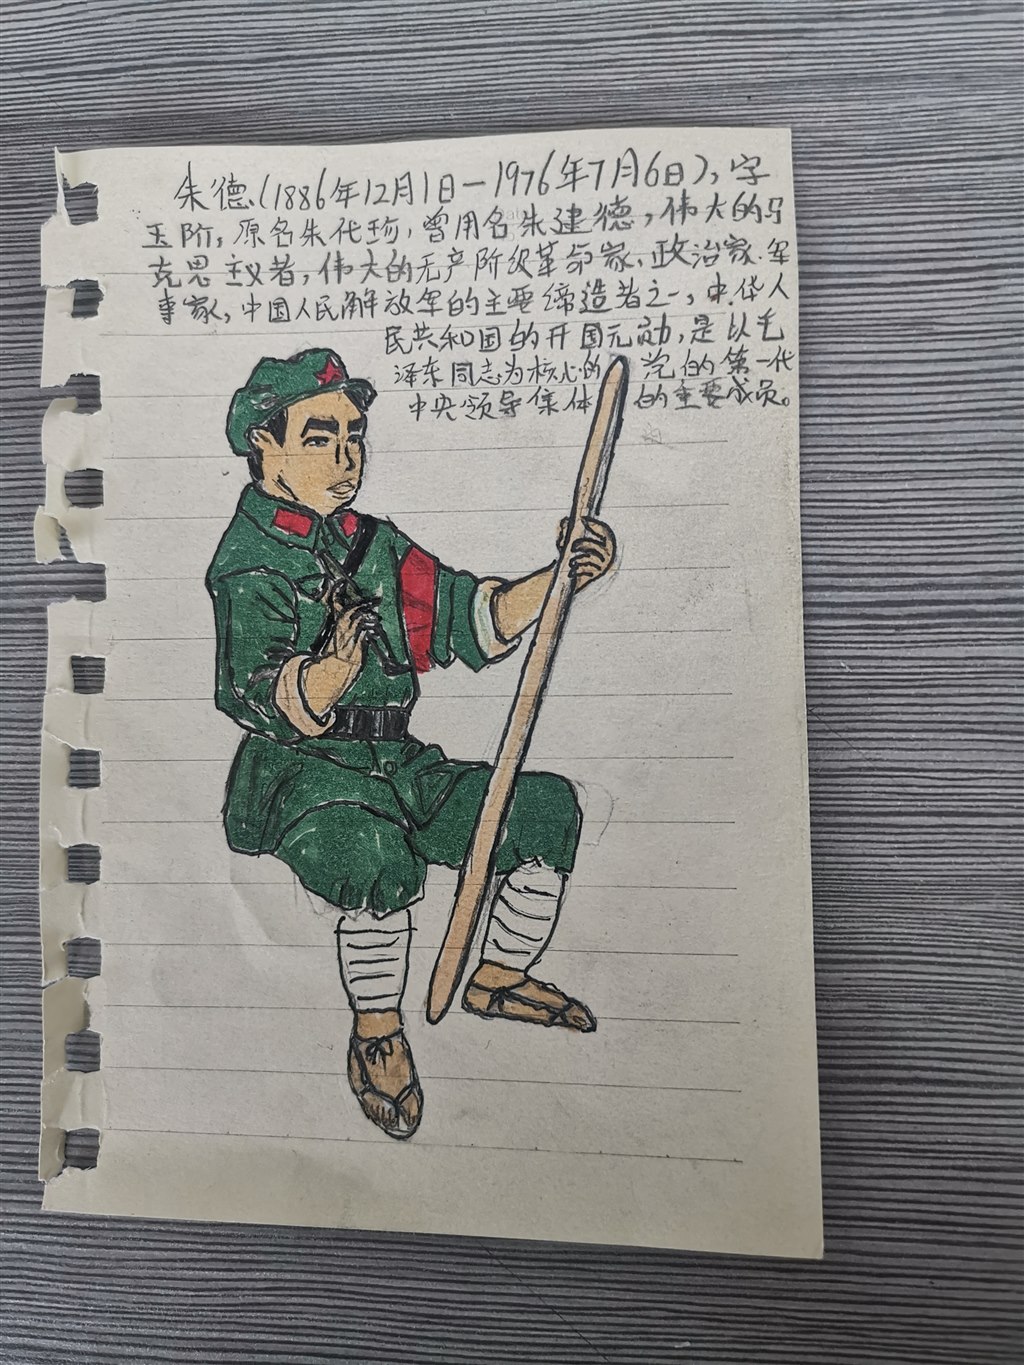 朱德(1886年12月1日-1976年7月6日),字
玉阶,原名朱代珍,曾用名朱建德,伟大的马
克思主义者,伟大的无产阶级革命家、政治家、军
事家,中国人民解放军的主要缔造者之一,中华人
民共和国的开国元勋,是以毛
泽东同志为核心的党的第一代
中央领导集体的主要成员。